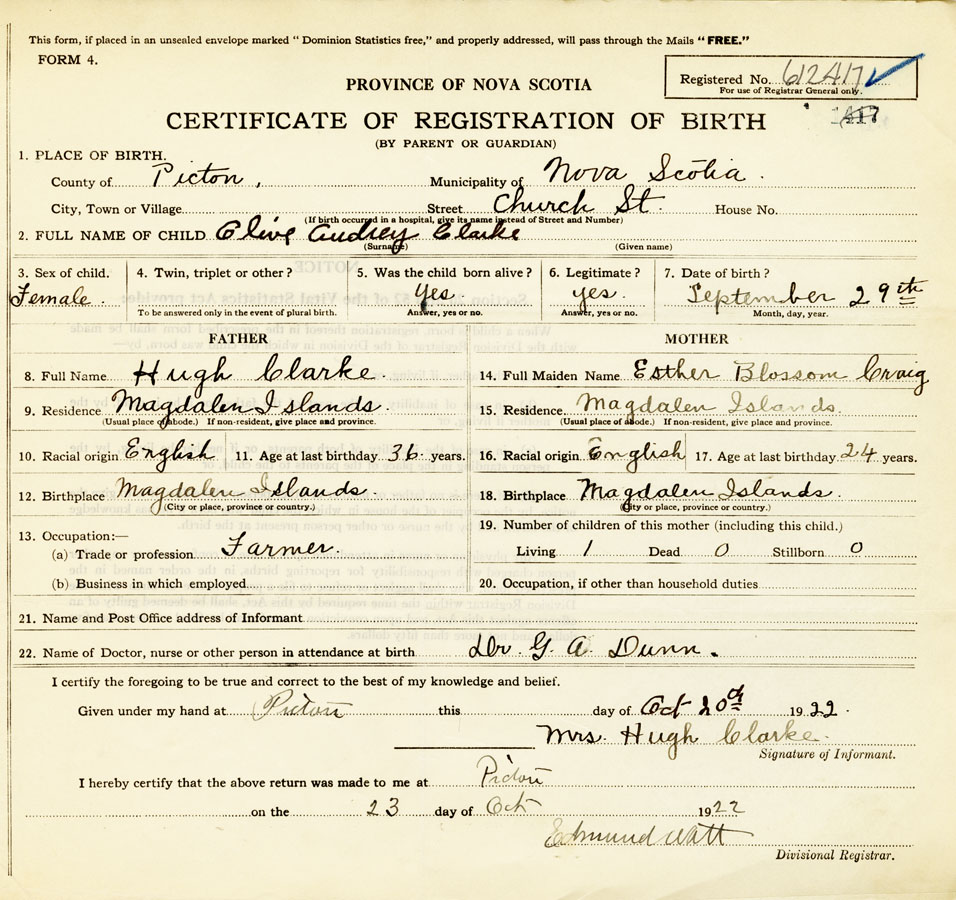 This form, if placed in an unsealed envelope marked “ Dominion Statistics free,” and properly addressed, will pass through the Mails “ FREE.”
FORM 4.
Registered No. 612417
For use of Registrar General only.
PROVINCE OF NOVA SCOTIA
CERTIFICATE OF REGISTRATION OF BIRTH
(BY PARENT OR GUARDIAN)
1. PLACE OF BIRTH.
County of Pictou, Municipality of Nova Scotia.
City, Town or Village Street Church St. House No.
(If birth occurred in a hospital, give its name instead of Street and Number)
2. FULL NAME OF CHILD Olive Audrey Clarke
(Surname) (Given name)
3. Sex of child. 4. Twin, triplet or other? 5. Was the child born alive? 6. Legitimate? 7. Date of birth?
Female. Yes. yes. September 29th
To be answered only in the event of plural birth. Answer, yes or no. Answer, yes or no. Month, day, year.
FATHER MOTHER
8. Full Name Hugh Clarke. 14. Full Maiden Name Esther Blossom Craig
9. Residence Magdalen Islands. 15. Residence. Magdalen Islands.
(Usual place of abode.) If non-resident, give place and province. (Usual place of abode.) If non-resident, give place and province.
10. Racial origin English 11. Age at last birthday 36 years. 16. Racial origin English 17. Age at last birthday 24 years.
12. Birthplace Magdalen Islands. 18. Birthplace Magdalen Islands.
(City or place, province or country.) (City or place, province or country.)
13. Occupation:— 19. Number of children of this mother (including this child.)
(a) Trade or profession Farmer. Living 1 Dead 0 Stillborn 0
(b) Business in which employed 20. Occupation, if other than household duties
21. Name and Post Office address of Informant
22. Name of Doctor, nurse or other person in attendance at birth Dr. G. A. Dunn.
I certify the foregoing to be true and correct to the best of my knowledge and belief.
Given under my hand at Pictou this day of Oct 20th 1922.
Mrs. Hugh Clarke.
Signature of Informant.
I hereby certify that the above return was made to me at Pictou
on the 23 day of Oct 1922
Edmund Watt
Divisional Registrar.